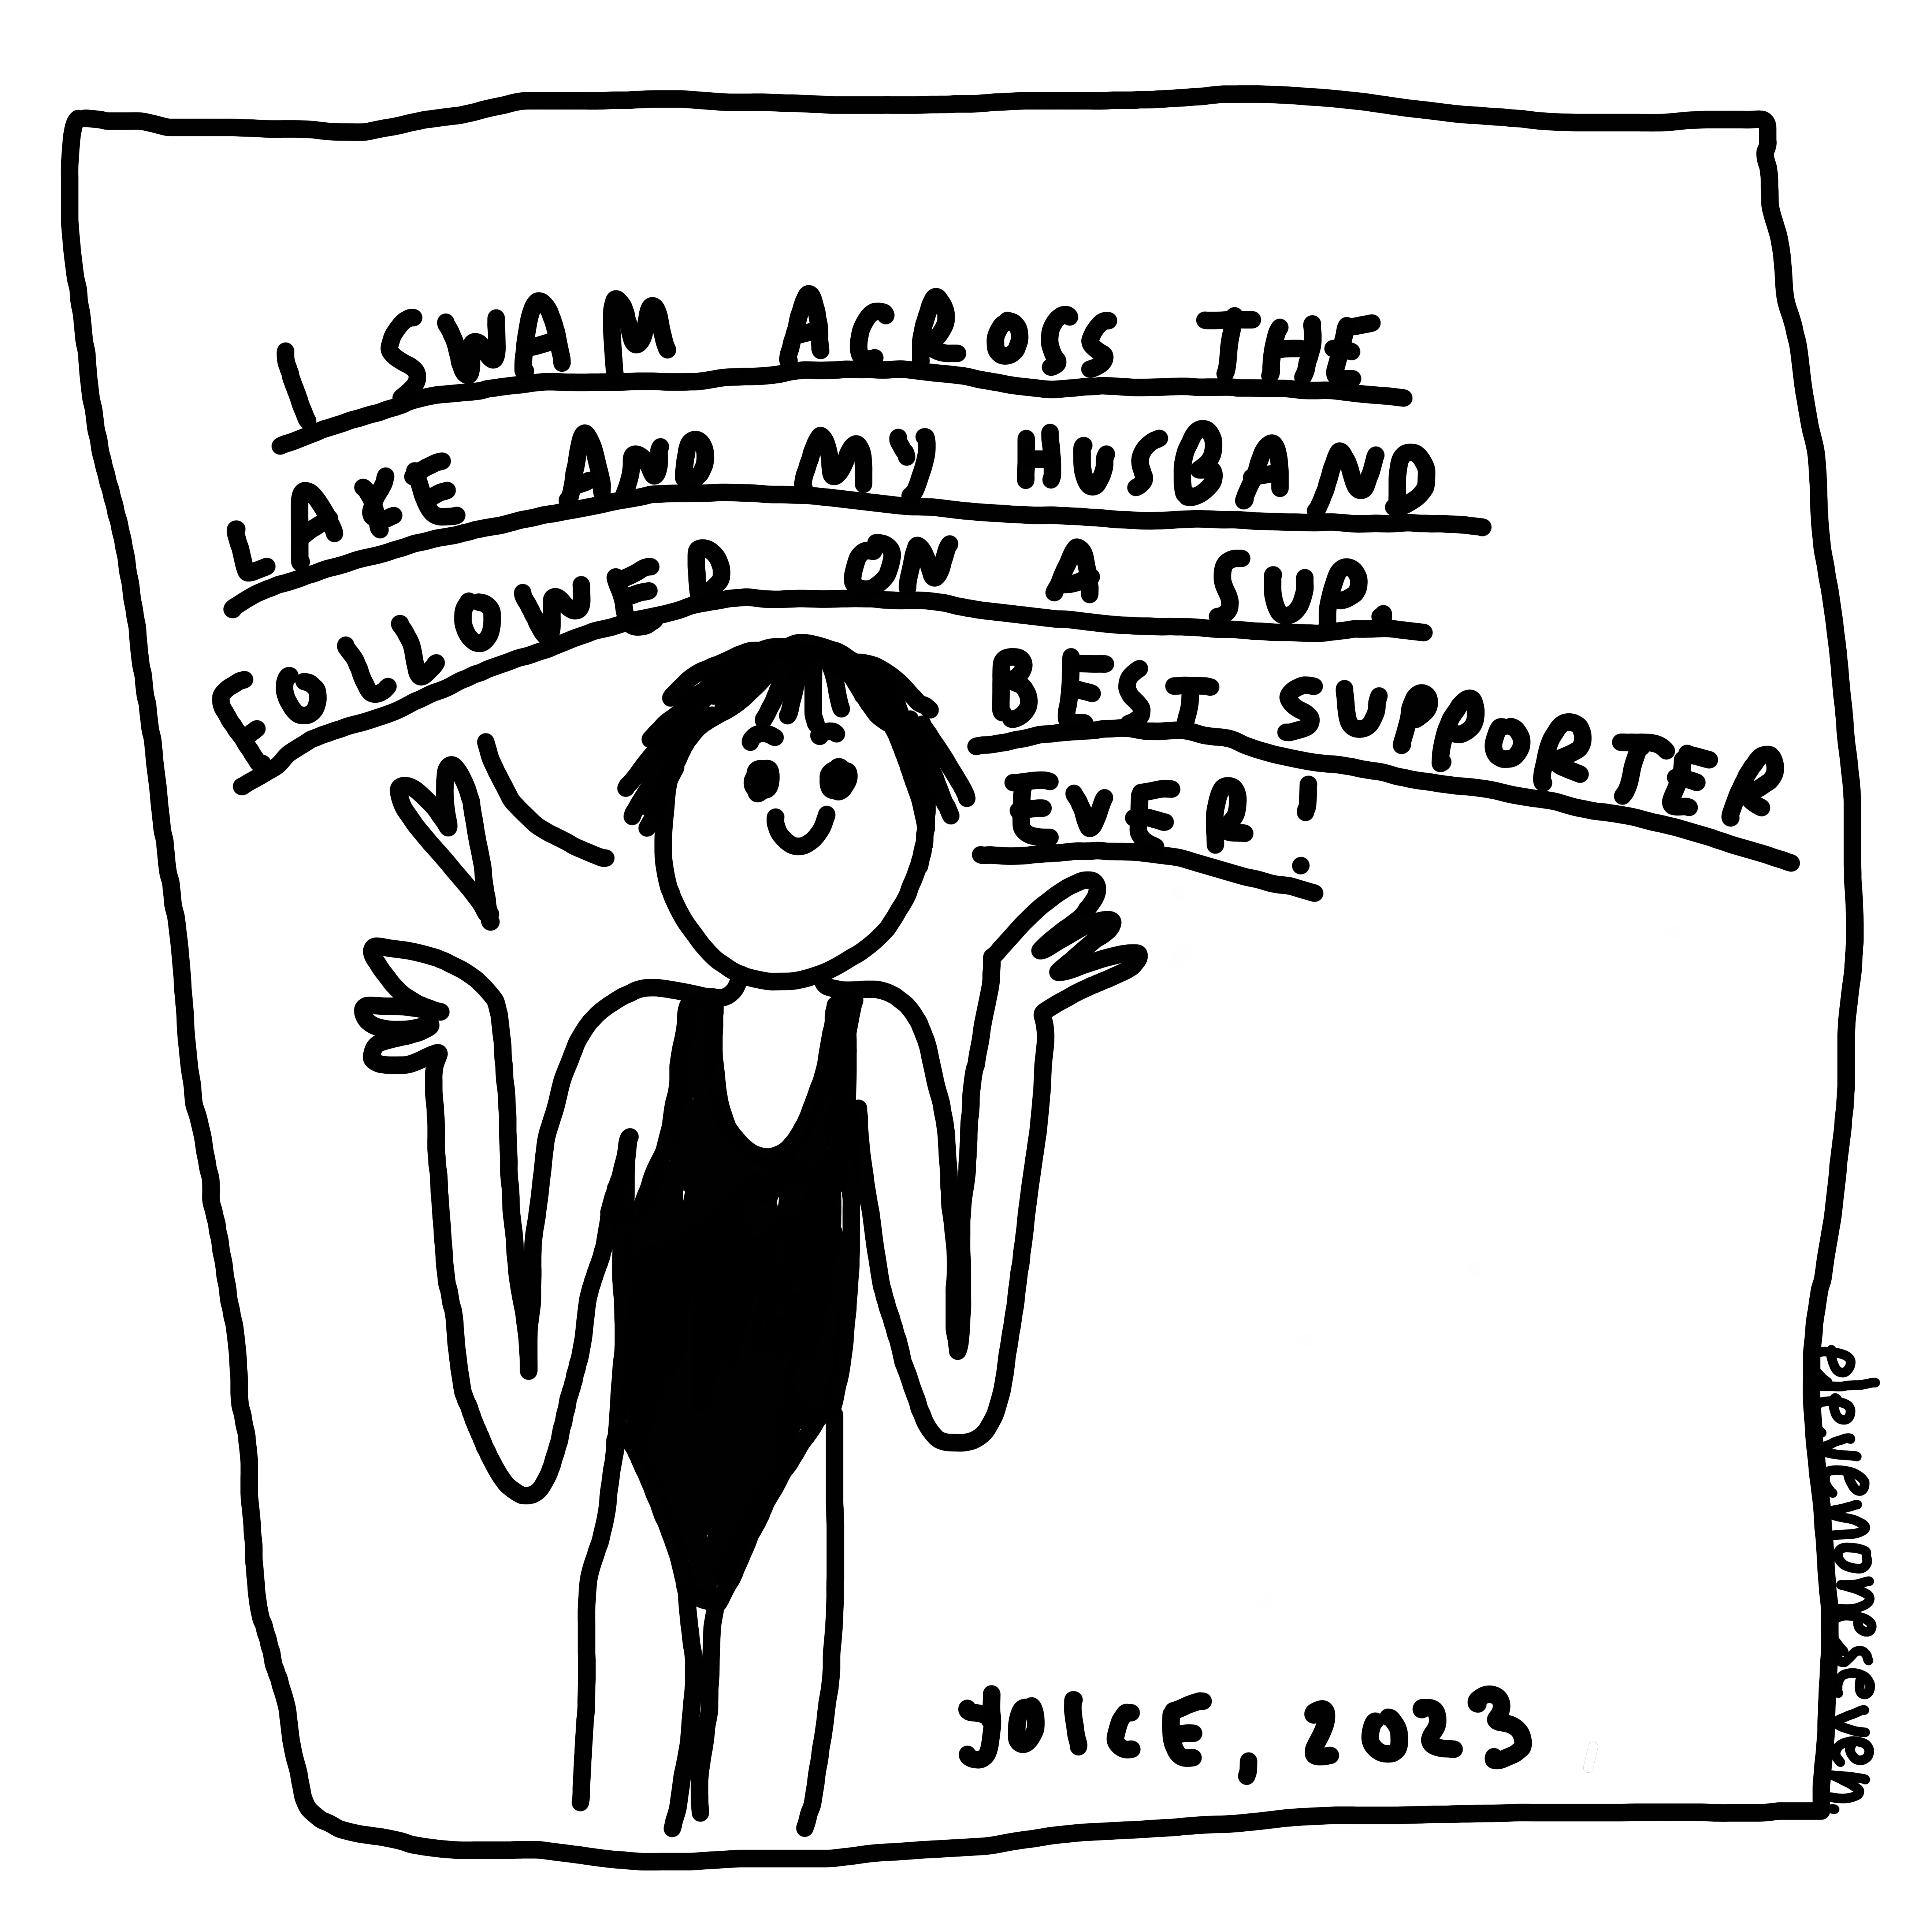 I SWAM ACROSS THE
LAKE AND MY HUSBAND
FOLLOWED ON A SUP.
BEST SUPPORTER
EVER!
JOICE, 2023